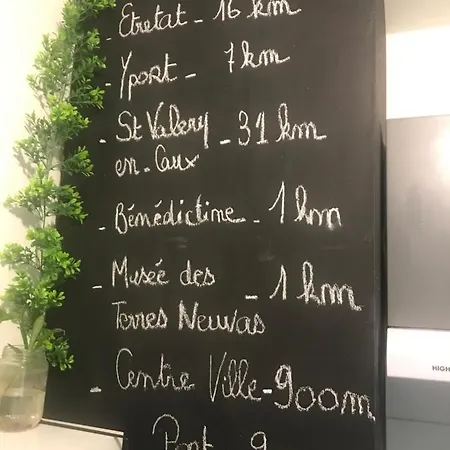 - Etretat - 16 km
- Yport - 7 km
- St Valery - 31 km
en-Caux
- Bénédictine - 1 km
- Musée des - 1 km
Terres Neuvas
- Centre Ville - 900m
HIGH